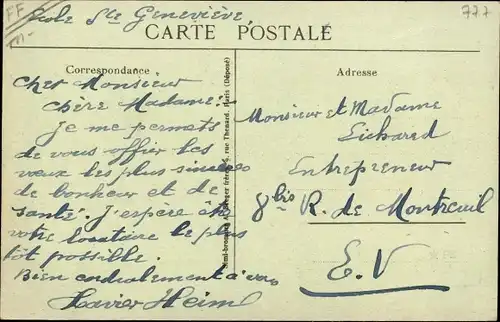 FF
777
Ecole Ste Geneviève
CARTE POSTALE
Correspondance
Adresse
Cher Monsieur
Chère Madame.
Je me permets
de vous offrir les
vœux les plus sincères
de bonheur et de
santé. J'espère être
votre locataire le plus
tôt possible.
Bien cordialement à vous
Xavier Heim
Monsieur et Madame
Lichared
Entrepreneur
8bis R. de Montreuil
E.V
rue Thénard, Paris (Déposé)